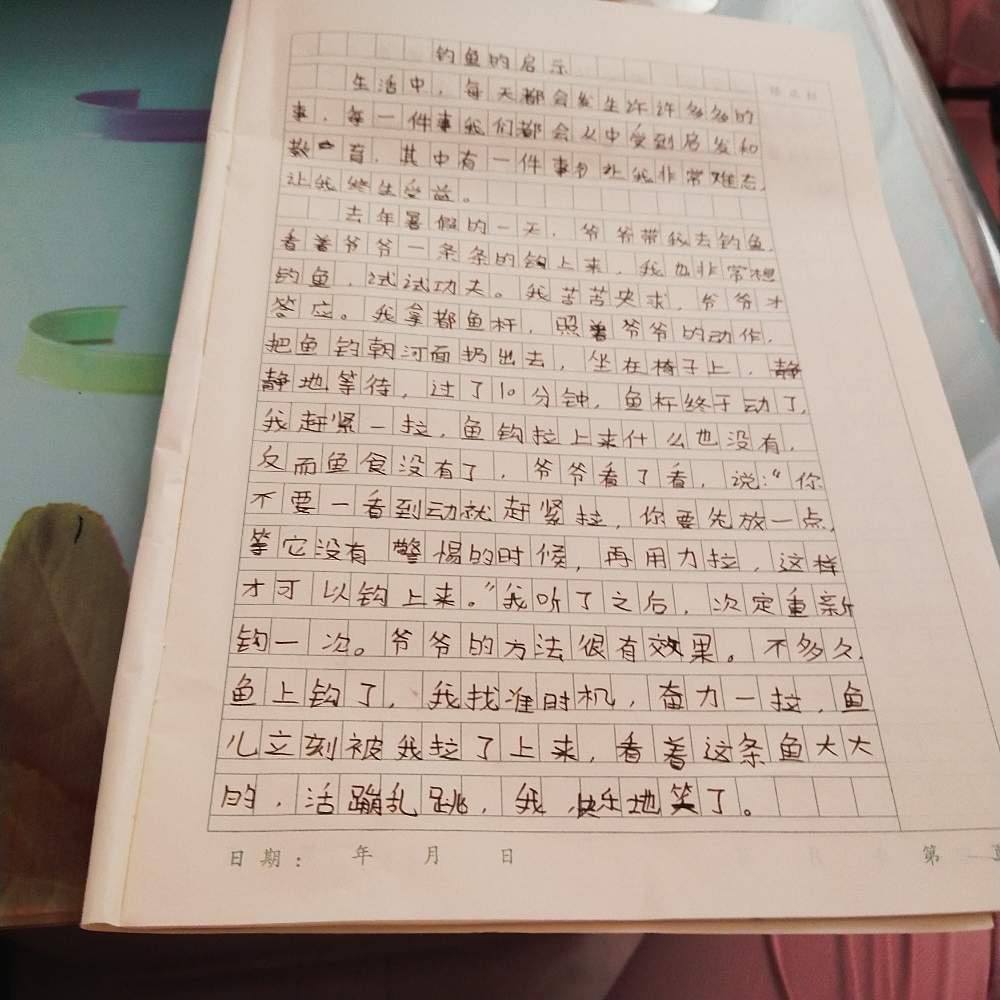 钓鱼的启示
生活中，每天都会发生许许多多的
事，每一件事我们都会从中受到启发和
教育，其中有一件事让我非常难忘，
让我终生受益。
去年暑假的一天，爷爷带我去钓鱼，
看着爷爷一条条的钩上来，我也非常想
钓鱼，试试功夫。我苦苦央求，爷爷才
答应。我拿都鱼杆，照着爷爷的动作，
把鱼钓朝河面扔出去，坐在椅子上，静
静地等待，过了10分钟，鱼杆终于动了，
我赶紧一拉，鱼钩拉上来什么也没有，
反而鱼食没有了，爷爷看了看，说：“你
不要一看到动就赶紧拉，你要先放一点，
等它没有警惕的时候，再用力拉，这样
才可以钩上来。”我听了之后，次定重新
钩一次。爷爷的方法很有效果。不多久，
鱼上钩了，我找准时机，奋力一拉，鱼
儿立刻被我拉了上来，看着这条鱼大大
的，活蹦乱跳，我快乐地笑了。
日期： 年 月 日
第